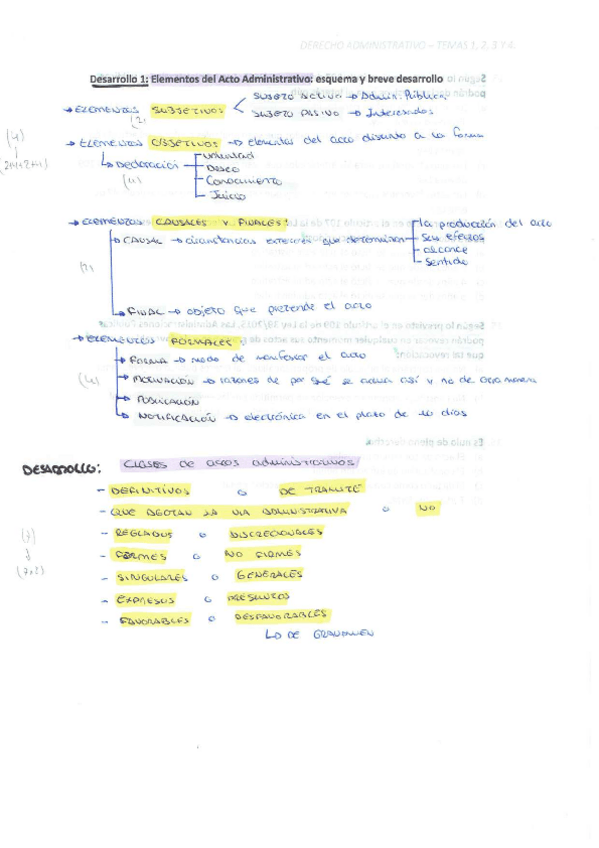 DERECHO ADMINISTRATIVO – TEMAS 1, 2, 3 Y 4
Desarrollo 1: Elementos del Acto Administrativo: esquema y breve desarrollo
→ ELEMENTOS SUBJETIVOS
(2)
SUJETO ACTIVO → Admin. Pública
SUJETO PASIVO → Interesados
(4)
(2+4+2+4)
→ ELEMENTOS OBJETIVOS → elementos del acto distinto a la forma
↳ DECLARACIÓN
(4)
Voluntad
Deseo
Conocimiento
Juicio
→ ELEMENTOS CAUSALES Y FINALES:
(2)
→ CAUSAL → circunstancias externas que determinan
la producción del acto
sus efectos
alcance
sentido
→ FINAL → objeto que pretende el acto
→ ELEMENTOS FORMALES:
(4)
→ FORMA → modo de manifestar el acto
→ MOTIVACIÓN → razones de por qué se actua así y no de otra manera
→ PUBLICACIÓN
→ NOTIFICACIÓN → electrónica en el plazo de 10 días
DESARROLLO: CLASES de actos administrativos
- DEFINITIVOS o DE TRAMITE
- QUE AGOTAN LA VIA ADMINISTRATIVA o NO
(7)
↓
(7x2)
- REGLADOS o DISCRECIONALES
- FIRMES o NO FIRMES
- SINGULARES o GENERALES
- EXPRESOS o PRESUNTOS
- FAVORABLES o DESFAVORABLES
↳ O DE GRAVAMEN